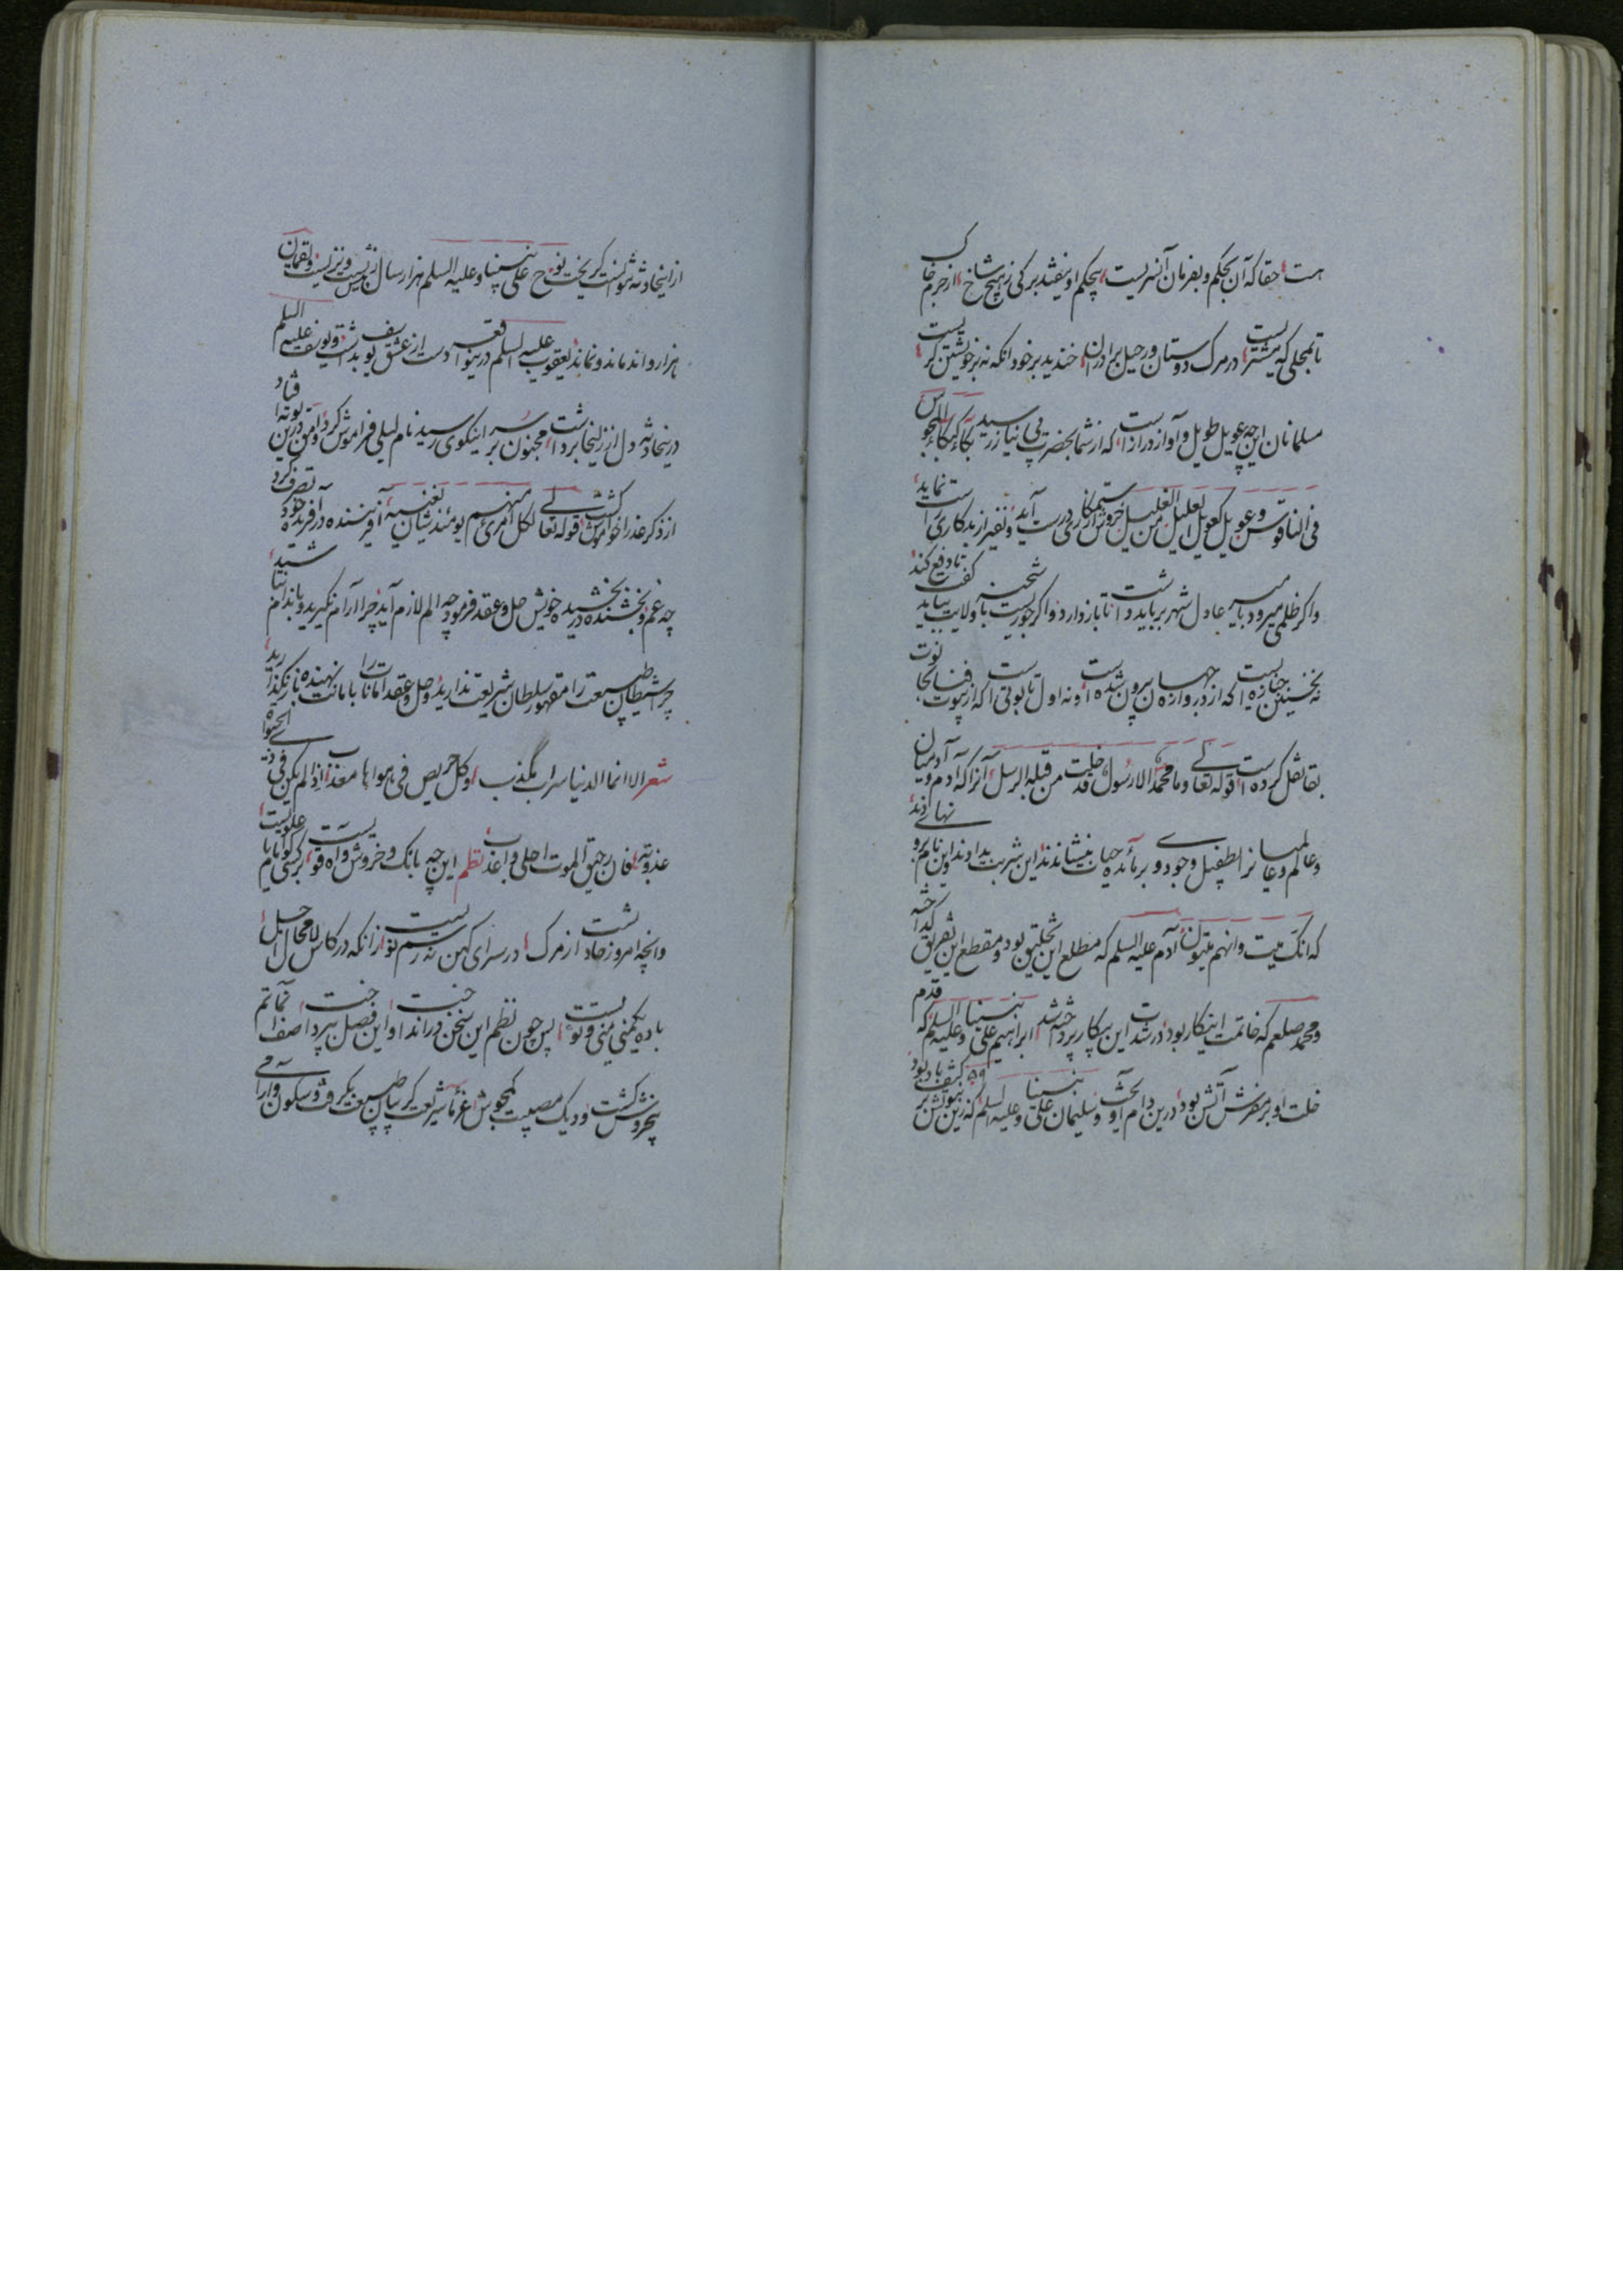 هست حقا که آن بحکم و بفرمان آنسریست بیحکم او نیفتد برکی ز هیچ شاخ از جرم خاک
تا بمحلی که مشتریست در مرک دوستان و رحیل برادران خندید بر خود آنکه نه بر خویشتن کریست
مسلمانان این چه عویل طویل و آواز درازست که از شما بحضرت بی نیاز رسید بکاء کبکاء المجوس
فی الناقوس و عویل کعویل العلیل من الغلیل خروش از ستمکاری درست آید و نفیر از بدکاری راست نماید
و اکر ظلمی میرود بامیر عادل شهر بر باید داشت تا باز دارد و اکر جوریست با شحنه ولایت بباید کفت تا دفع کند
نه نخستین جنازه ایست که از در دروازه جهان بیرون شده است و نه اول تابوتی است که از بیوت فنا بخانوت
بقا نقل کرده است قوله تعالی و ما محمد الا رسول قد خلت من قبله الرسل آنرا که آدم و آدمیان
و عالم و عالمیانرا بطفیل وجود وی بر مائده حیات بنشاندند این شربت بدادند و این نام برو نهادند
که انک میت و انهم میتون آدم علیه السلم که مطلع این تخلیق بود و مقطع این تفریق کداخته
و محمد صلعم که خاتمت اینکار بود در شدت این پیکار پرداخته شد ابراهیم علی نبینا و علیه السلم که قدم
خلت او بر مفرش آتش بود درین دام آویخت و سلیمان علی نبینا و علیه السلم که زین نبوتش بر کتف باد بود
ازینحادثه نتوانست کریخت نوح علی نبینا و علیه السلم هزار سال زیست و نزیست و لقمان
هزار و اند ماند و نماند یعقوب علیه السلم درینواقعه دست از عشق یوسف بداشت و یوسف علیه السلم
درینحادثه دل از زلیخا برداشت مجنون بر سر اینکوی رسید نام لیلی فراموش کرد وامق درین بوته افتاد
از ذکر عذرا خاموش کشت قوله تعالی لکل امرئ منهم یومئذ شأن یغنیه آفریننده در آفریده خود تصرف کرد
چه غم و بخشنده در بخشیده خویش حل و عقد فرمود چه الم لازم آید چرا آرام نکیرید و باندام نباشید
چرا شیطان طبیعت را مقهور سلطان شریعت ندارید و حل و عقد امانات را بامانت نهنده باز نکذارید
شعر الا انما الدنیا سراب مکذب و کل حریص فی هواها معذب اذا لم یکن فی ذی الحیوة
عذوبته فان رحیق الموت احلی و اعذب نظم این چه بانک و خروش و آه قویست کرسی کوا یا با علویست
و انچه امروز حادث از مرک در سرای کهن نه رسم نویست زانکه در کاس لا محال اجل
باده یکمنی منی و تویست پس چون نظم این سخن در انداخت و این فصل بپرداخت صف ماتم
بخروش کشت و دیک مصیبت بجوش غرمای شریعت کریبان طبیعت بکرفت و سکون و آرامی